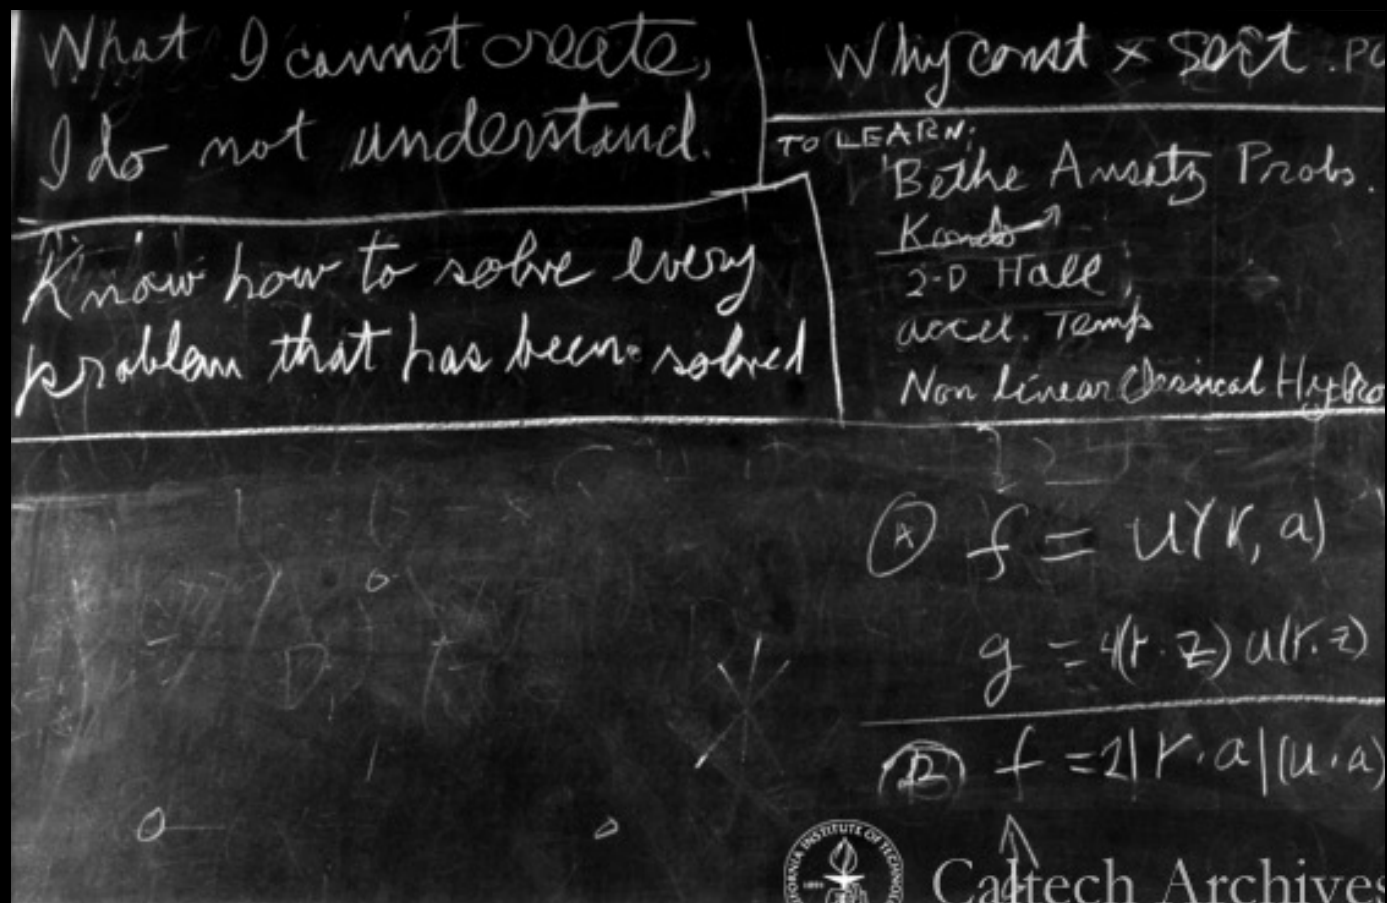 What I cannot create,
I do not understand.
Know how to solve every
problem that has been solved
Why const × sort . PO
TO LEARN:
Bethe Ansatz Probs.
Kondo
2-D Hall
accel. Temp
Non linear Classical Hydro
Ⓐ f = u(r, a)
g = 4(r·z) u(r.z)
Ⓑ f = 2|r·a|(u·a)
CALIFORNIA INSTITUTE OF TECHNOLOGY
1891
Caltech Archives